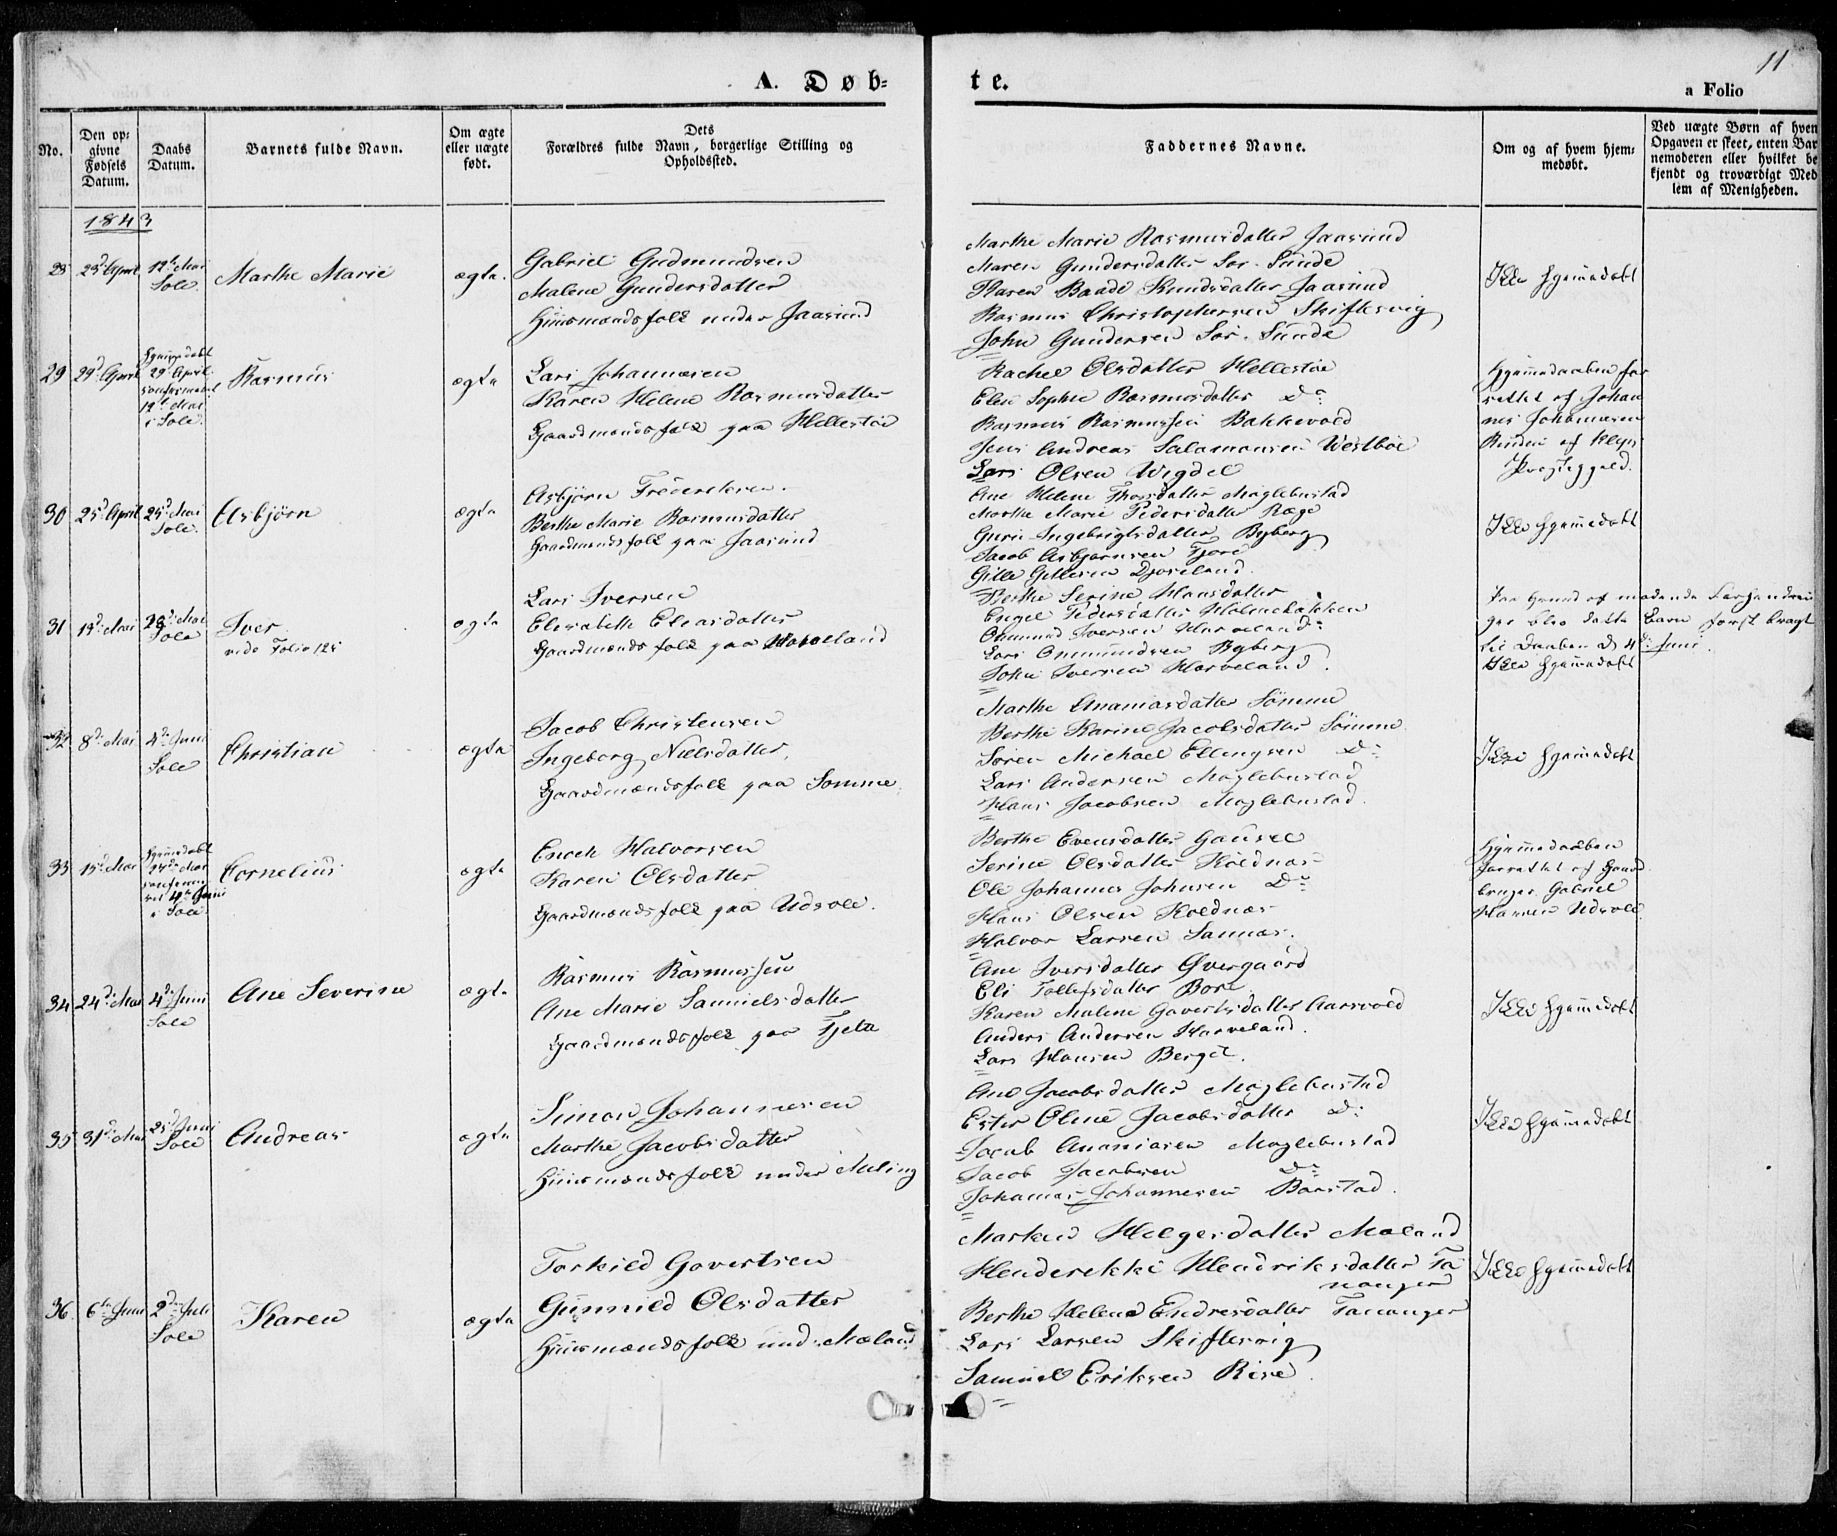 11
A. Døb=
te.
a Folio
No.
Den op=
givne
Fødsels
Datum.
Daabs
Datum.
Barnets fulde Navn.
Om ægte
eller uægte
født.
Dets
Forældres fulde Navn, borgerlige Stilling og
Opholdssted.
Faddernes Navne.
Om og af hvem hjem=
medøbt.
Ved uægte Børn af hven
Opgaven er skeet, enten Bar
nemoderen eller hvilket be
kjendt og troværdigt Med
lem af Menigheden.
1843
28 23d April 12te Mai
Sole
Marthe Marie
ægte.
Gabriel Gudmundsen
Malene Gundersdatter
Huusmandsfolk under Jaasund
Marthe Marie Rasmusdatter Jaasund
Maren Gundersdatter Sør. Sunde
Karen Baade Knudsdatter Jaasund
Rasmus Christophersen Skiftesvig
John Gundersen Sør. Sunde
Ikke hjemmedøbt
29 29d April
hjemmedøbt
29d April
12te Mai
i Sole.
Rasmus
ægte
Lars Johannesen
Karen Helene Rasmusdatter
Gaardmandsfolk paa Hellestøe
Rachel Olsdatter Hellestøe
Elen Sophie Rasmusdatter Do
Rasmus Rasmussen Bakkevold
Jens Andreas Salamonsen Westbøe
Lars Olsen Wigdel
Hjemmedaaben for
rettet af Johan
nes Johannesen
af Kleps
Præstegjeld.
30 25d April 25d Mai
Sole.
Asbjørn
ægte
Asbjørn Frederiksen.
Berthe Marie Rasmusdatter
Gaardmandsfolk paa Jaasund
Ane Helene Thorsdatter Møglebustad
Marthe Marie Pedersdatter Ræge
Guru Ingebrigtsdatter Byberg
Jacob Asbjørnsen Tjore
Gitle Gitlesen Djoseland.
Ikke hjemmedøbt
31 13d Mai 28d Mai
Sole
Iver.
vide Folio 125
ægte
Lars Iversen
Elisabeth Eliasdatter
Gaardmandsfolk paa Harveland
Berthe Serine Hansdatter
Engel Pedersdatter Holenebakken
Ommund Iversen Harveland
Lars Ommundsen Byberg
John Iversen Harveland.
Paa Grund af mødende
ger blev dette Barn først bragt
til Daaben d. 4de Juni.
Ikke hjemmedøbt
32 8d Mai 4de Juni
Sole
Christian
ægte
Jacob Christensen
Ingeborg Nielsdatter,
Gaardmandsfolk paa Somme.
Marthe Ananiasdatter Sømme
Berthe Karine Jacobsdatter Sømme
Søren Michael Ellingsen Do
Lars Andersen Møglebustad
Hans Jacobsen Møglebustad.
Ikke hjemmedøbt
33 15d Mai
hjemmedøbt
24de Mai
i Sole.
Cornelius
ægte
Enoch Halvorsen
Karen Olsdatter
Gaardmandsfolk paa Udsole.
Berthe Evensdatter Gausel
Serine Olsdatter Koldnæs
Ole Johannes Johnsen Do
Hans Olsen Koldnæs
Halvor Larsen Sannæs.
Hjemmedaaben
forrettet af Gaard
bruger Gabriel
Hansen Udsole
34 24d Mai 4de Juni
Sole
Ane Severine
ægte
Rasmus Rasmussen
Ane Marie Samuelsdatter
Gaardmandsfolk paa Tjelta
Ane Iversdatter Øvergaard
Eli Tollefsdatter Bore
Karen Malene Govertsdatter Aarsvold
Anders Andersen Harveland.
Lars Hansen Berget.
Ikke hjemmedøbt
35 31d Mai 25d Juni
Sole
Andreas
ægte
Simon Johannesen
Marthe Jacobsdatter
Huusmandsfolk under Meling
Ane Jacobsdatter Møglebustad
Ester Oline Jacobsdatter Do
Jacob Ananiasen Møglebustad
Jacob Jacobsen Do
Johannes Johannesen Børstad.
Ikke hjemmedøbt
36. 6te Juni 2den Juli
Sole
Karen
ægte
Torkild Govertsen
Gunnild Olsdatter
Huusmandsfolk und. Mæland.
Marken Helgesdatter Mæland
Henderikke Hendriksdatter Ta
nanger
Berthe Helene Endresdatter Tananger
Lars Larsen Skiftesvig
Samuel Eriksen Risa.
Ikke hjemmedøbt